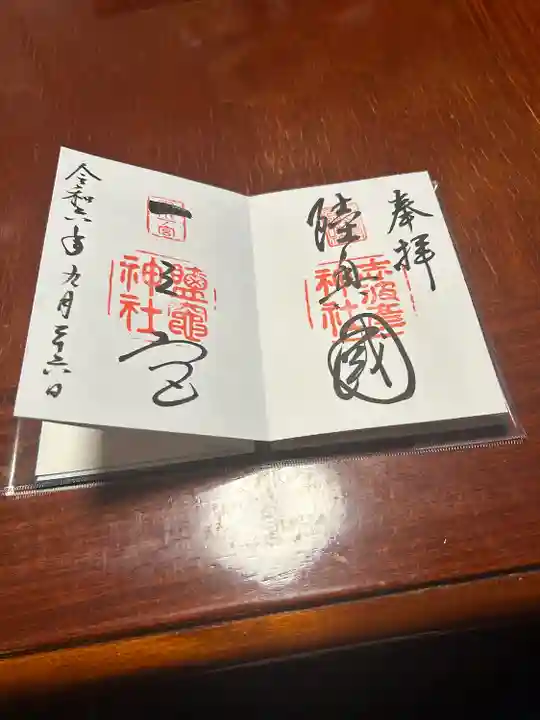 奉拝
陸奥國
志波彦神社
一之宮
鹽竈神社
令和六年九月二十六日